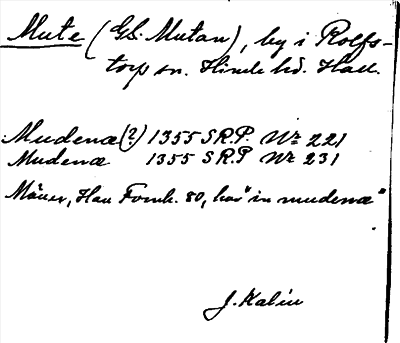 Mute (GS. Mutan), by i Rolfs-
torp sn. Himle hd. Hall.
Mudenæ (?) 1355 SRP. Nr 221
Mudenæ 1355 SRP Nr 231
Måner, Hau Fornk. 80, har "in mudenæ"
J. Kalin